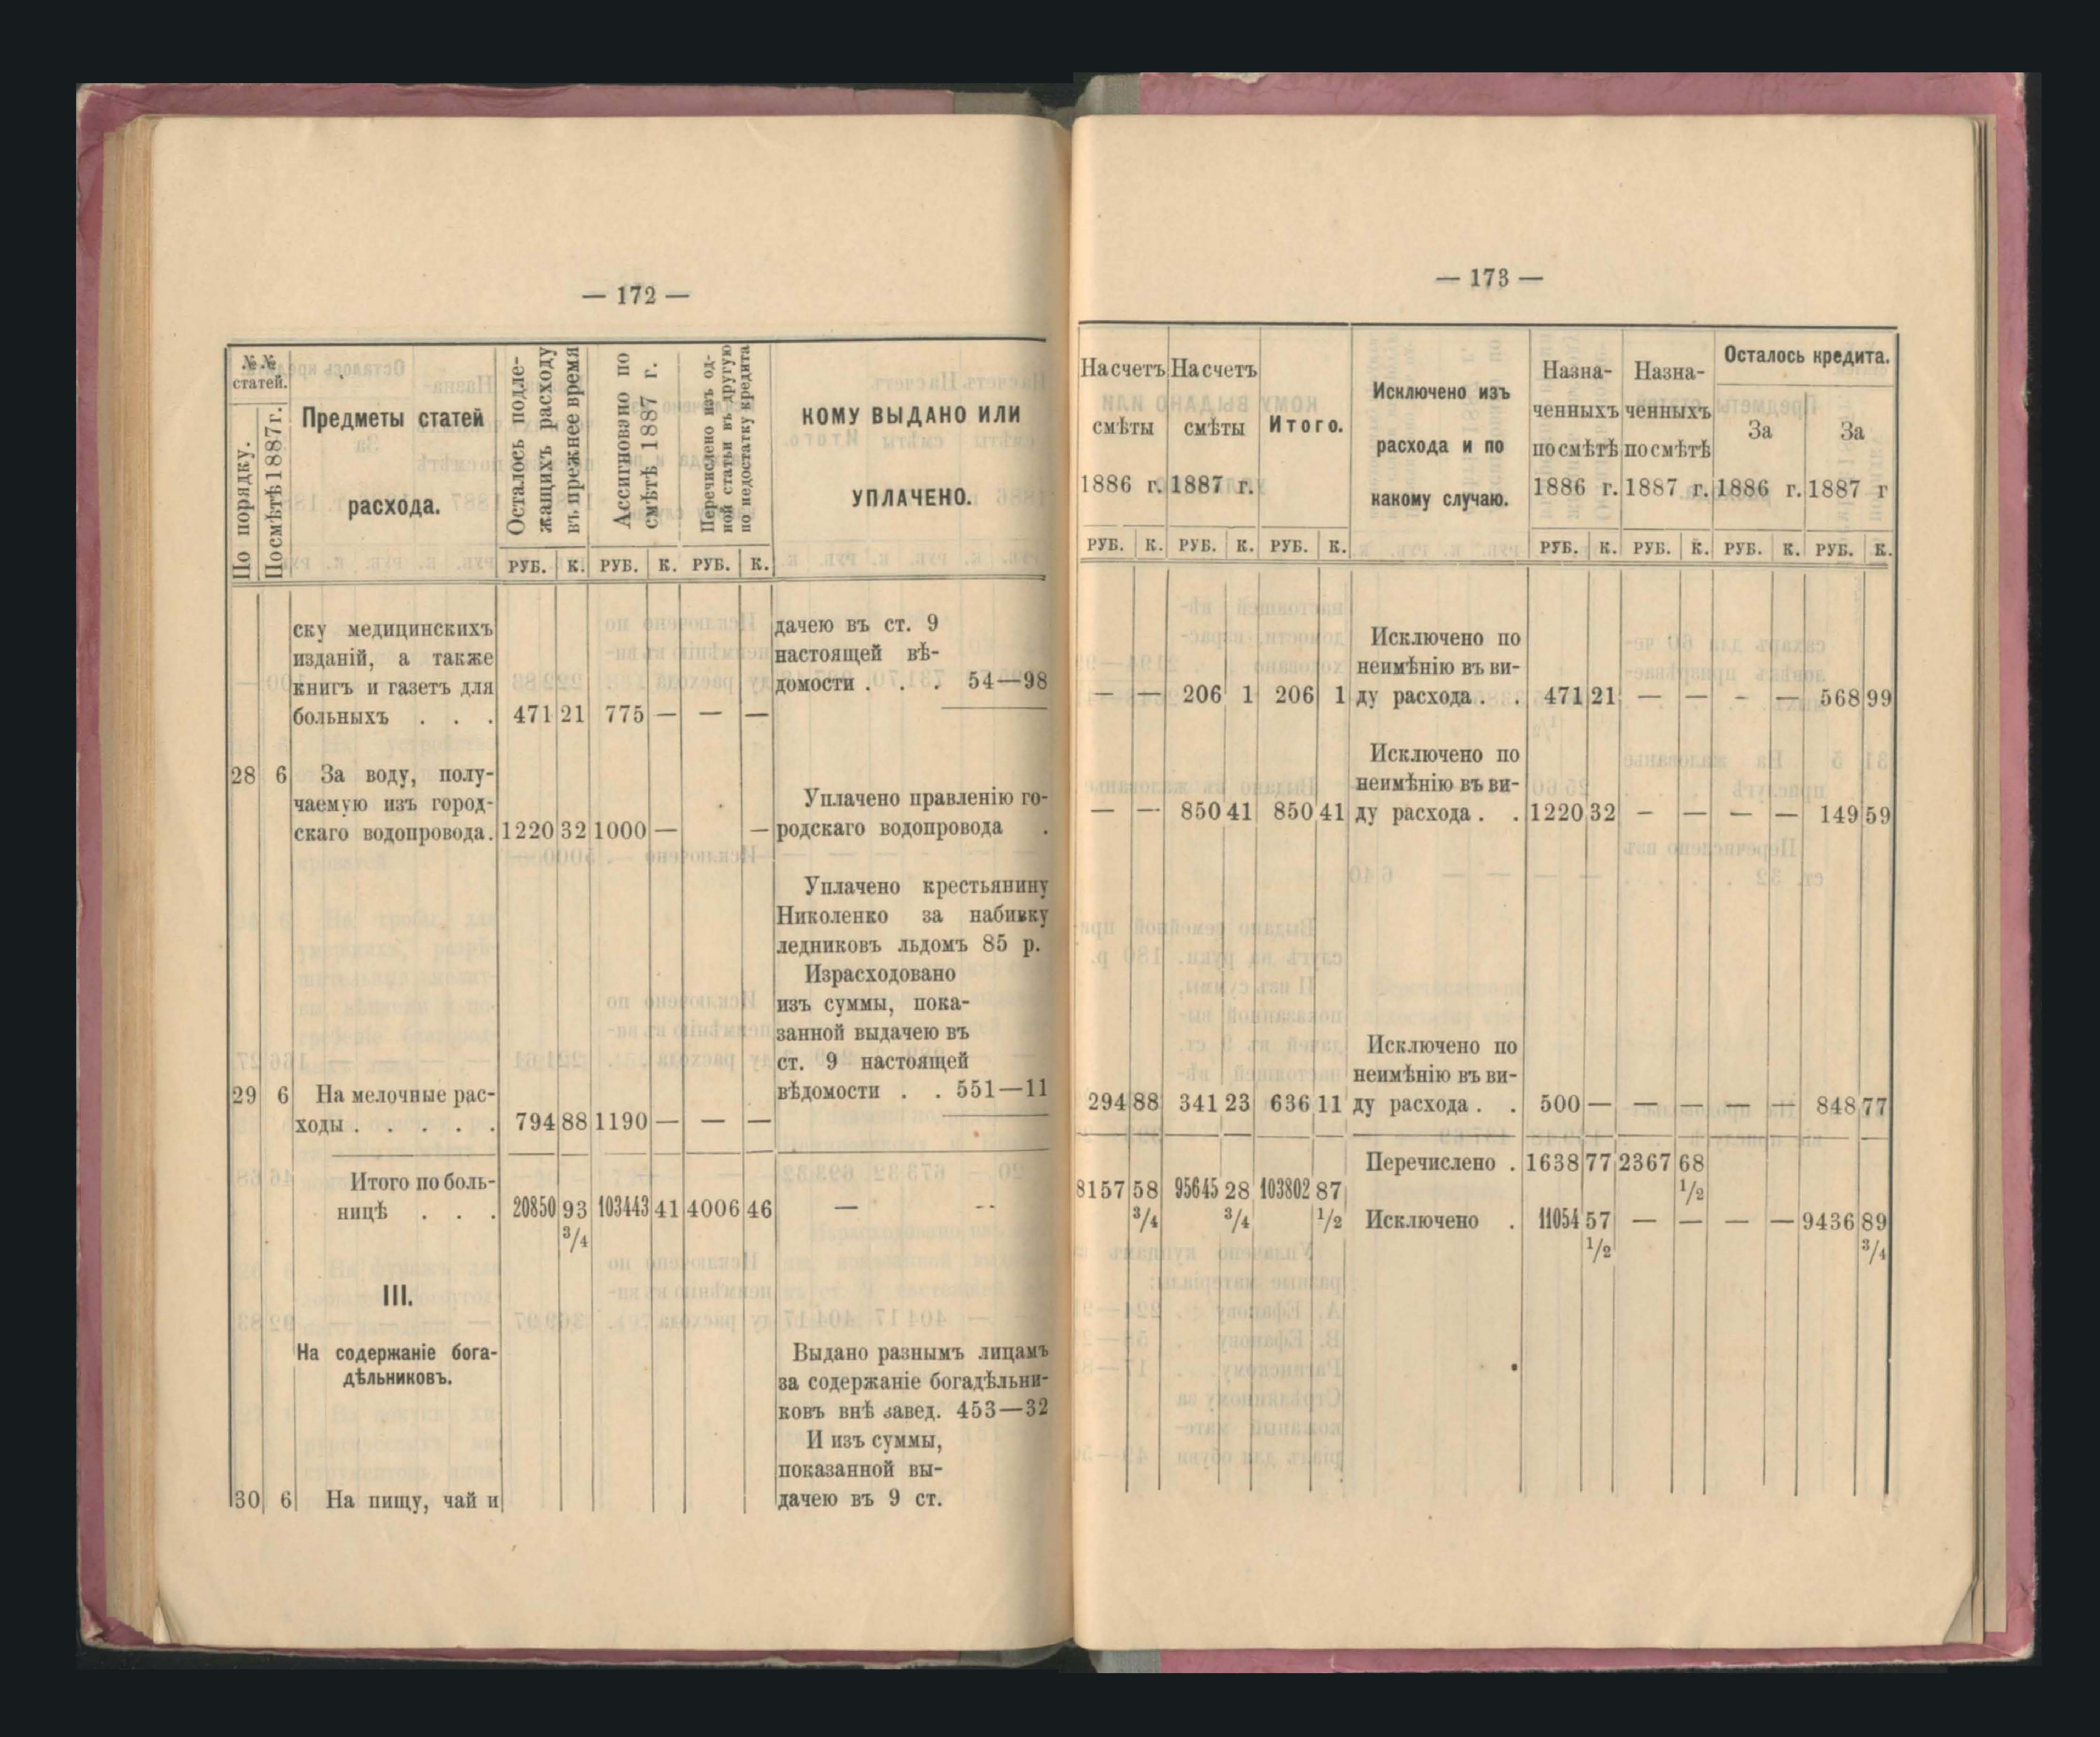 — 172 —
№№ статей.
По порядку.
По смѣтѣ 1887 г.
Предметы статей
расхода.
Осталось подле-
жащихъ расходу
въ прежнее время
Ассигновано по
смѣтѣ 1887 г.
Перечислено изъ од-
ной статьи въ другую
по недостатку кредита
КОМУ ВЫДАНО ИЛИ
УПЛАЧЕНО.
РУБ. К. РУБ. К. РУБ. К.
ску медицинскихъ
изданій, а также
книгъ и газетъ для
больныхъ . . . 471 21 775 — — —
дачею въ ст. 9
настоящей вѣ-
домости . . . 54—98
28 6 За воду, полу-
чаемую изъ город-
скаго водопровода. 1220 32 1000 — —
Уплачено правленію го-
родскаго водопровода .
Уплачено крестьянину
Николенко за набивку
ледниковъ льдомъ 85 р.
Израсходовано
изъ суммы, пока-
занной выдачею въ
ст. 9 настоящей
вѣдомости . . 551—11
29 6 На мелочные рас-
ходы . . . . . 794 88 1190 — — —
Итого по боль-
ницѣ . . . 20850 93 103443 41 4006 46 — --
3/4
III.
На содержаніе бога-
дѣльниковъ.
Выдано разнымъ лицамъ
за содержаніе богадѣльни-
ковъ внѣ завед. 453—32
И изъ суммы,
показанной вы-
30 6 На пищу, чай и
дачею въ 9 ст.
— 173 —
На счетъ
смѣты
1886 г.
На счетъ
смѣты
1887 г.
Итого.
Исключено изъ
расхода и по
какому случаю.
Назна-
ченныхъ
по смѣтѣ
1886 г.
Назна-
ченныхъ
по смѣтѣ
1887 г.
Осталось кредита.
За
1886 г.
За
1887 г
РУБ. К. РУБ. К. РУБ. К. РУБ. К. РУБ. К. РУБ. К. РУБ. К.
Исключено по
неимѣнію въ ви-
— — 206 1 206 1 ду расхода . . 471 21 — — - — 568 99
Исключено по
неимѣнію въ ви-
— — 850 41 850 41 ду расхода . . 1220 32 — — — — 149 59
Исключено по
неимѣнію въ ви-
294 88 341 23 636 11 ду расхода . . 500 — — — — — 848 77
Перечислено . 1638 77 2367 68
1/2
8157 58 95645 28 103802 87
3/4 3/4 1/2 Исключено . 11054 57 — — — — 9436 89
1/2 3/4